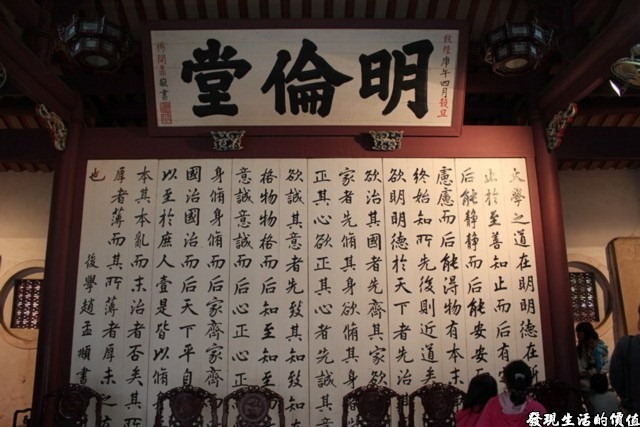 明倫堂
乾隆庚午四月穀旦
楊開鼎敬書
大學之道在明明德在
止於至善知止而后有
后能靜靜而后能安安
慮慮而后能得物有本末
終始知所先後則近道矣
欲明明德於天下者先治
欲治其國者先齊其家欲
家者先脩其身欲脩其身
正其心欲正其心者先誠
欲誠其意者先致其知致知
格物物格而后知至知至
意誠意誠而后心正心正
身脩身脩而后家齊家齊
國治國治而后天下平自
以至於庶人壹是皆以脩
本其本亂而末治者否矣其
厚者薄而其所薄者厚未之
也
後學趙孟頫書
發現生活的價值